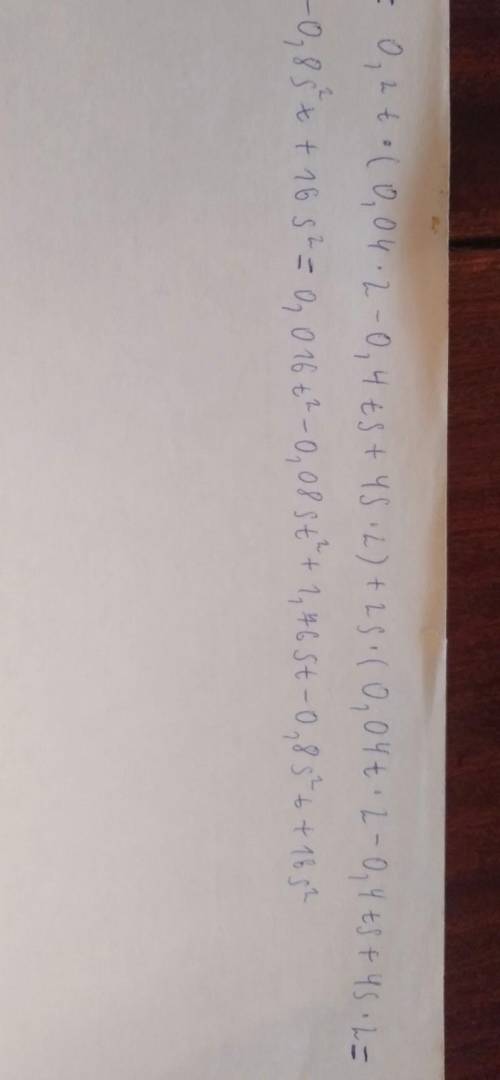 = 0,2t·(0,04·2-0,4ts+4s·2)+2s·(0,04t·2-0,4ts+4s·2=
-0,8s²t+16s²=0,016t²-0,08st²+1,76st-0,8s²t+16s²